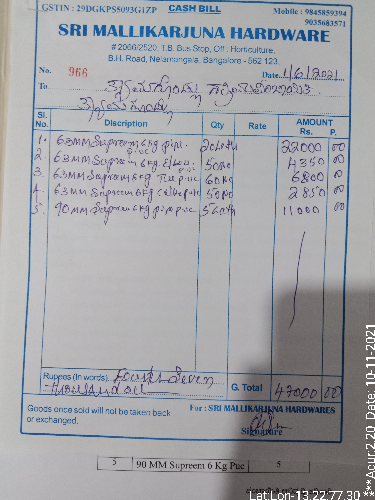 GSTIN : 29DGKPS5093G1ZP CASH BILL Mobile : 9845859394
9035683571
SRI MALLIKARJUNA HARDWARE
# 2066/2520, T.B. Bus Stop, Off : Horticulture,
B.H. Road, Nelamangala, Bangalore - 562 123
No. 966 Date 1/6/2021
To
Sl. No. Discription Qty Rate AMOUNT Rs. P.
1. 63MM Supreem 6kg pipe 22000 00
2. 63MM Supreem 6kg 50No 4350 00
3. 63MM Supreem 6kg 60No 6800 00
4. 63MM Supreem 6kg 50No 2850 00
5. 90MM Supreem 6kg 11000 00
Rupees (In words) Fourty Seven
Thousand only
G. Total 47000 00
Goods once sold will not be taken back
or exchanged.
For : SRI MALLIKARJUNA HARDWARES
Signature
5 90 MM Supreem 6 Kg Puc 5
Lat.Lon-13.22.77.30
***Acur.2.20 Date: 10-11-2021